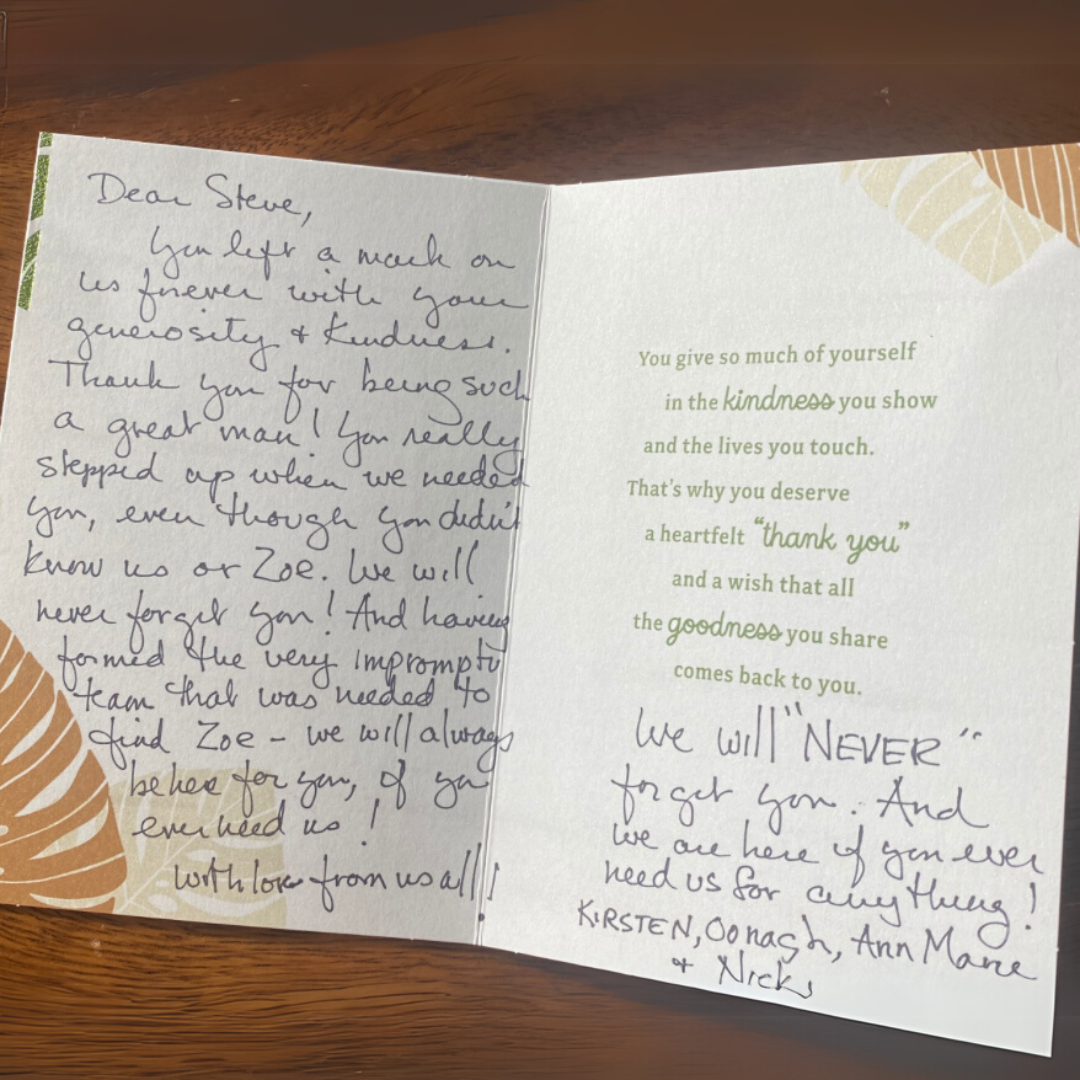 Dear Steve,
You left a mark on
us forever with your
generosity & Kindness.
Thank you for being such
a great man! You really
stepped up when we needed
you, even though you didn't
know us or Zoe. We will
never forget you! And having
formed the very impromptu
team that was needed to
find Zoe - we will always
be here for you, if you
ever need us!
With love from us all!
You give so much of yourself
in the kindness you show
and the lives you touch.
That's why you deserve
a heartfelt "thank you"
and a wish that all
the goodness you share
comes back to you.
We will "NEVER"
forget you. And
we are here if you ever
need us for anything!
KIRSTEN, Oonagh, Ann Marie
& Nick